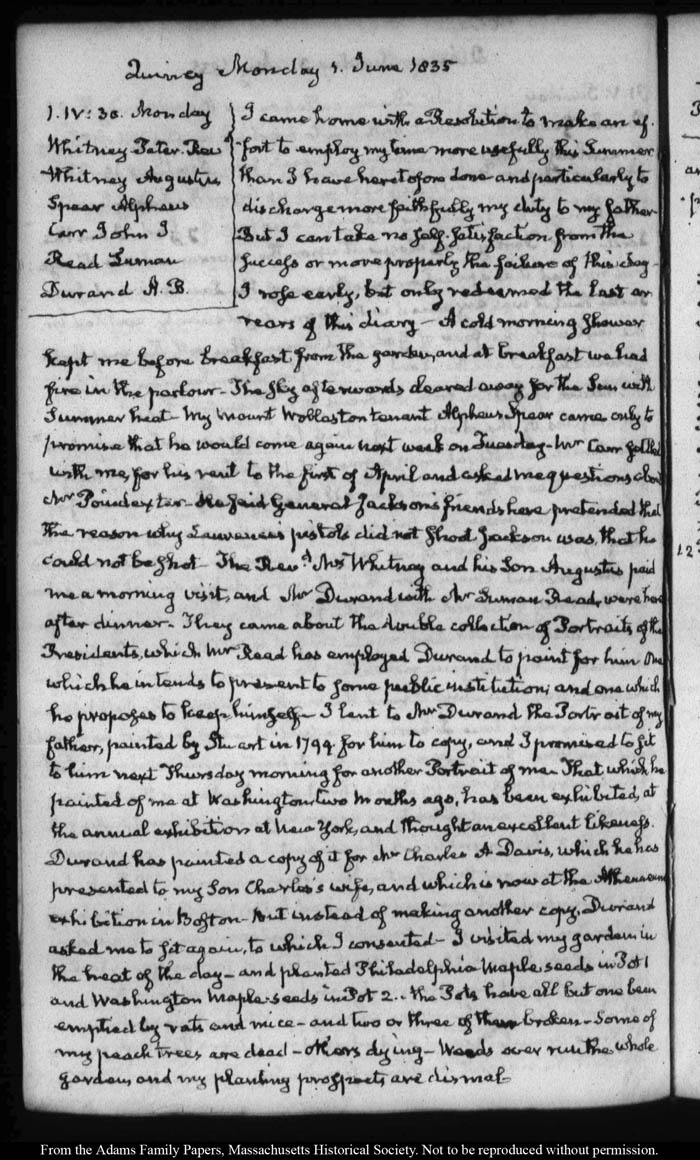 Quincy Monday 1. June 1835
1. IV: 30. Monday
Whitney Peter. Revd
Whitney Augustus
Spear Alpheus
Carr John I
Read Luman
Durand A. B.
I came home with a Resolution to make an ef-
fort to employ my time more usefully this Summer
than I have heretofore done and particularly to
discharge more faithfully my duty to my father
But I can take no self-satisfaction from the
success or more properly the failure of this day-
I rose early, but only redeemed the last ar
rears of this diary — A cold morning shower
kept me before breakfast from the garden, and at breakfast we had
fire in the parlour - The sky afterwards cleared away for the Sun with
Summer heat - My Mount Wollaston tenant Alpheus Spear came only to
promise that he would come again next week on Tuesday - Mr Carr settled
with me, for his rent to the first of April and asked me questions about
Mr Poindexter - He said General Jackson's friends here pretended that
the reason why Lawrence's pistols did not shoot Jackson was, that he
could not be shot - The Revd Mr Whitney and his Son Augustus paid
me a morning visit, and Mr Durand with Mr Luman Read, were here
after dinner - They came about the double collection of Portraits of the
Presidents, which Mr Read has employed Durand to paint for him One
which he intends to present to some public institution; and one which
he proposes to keep himself - I lent to Mr Durand the Portrait of my
father, painted by Stuart in 1794 for him to copy, and I promised to sit
to him next Thursday morning for another Portrait of me - That which he
painted of me at Washington two Months ago, has been exhibited, at
the annual exhibition at New York, and thought an excellent likeness.
Durand has painted a copy of it for Mr Charles A Davis, which he has
presented to my Son Charles's wife, and which is now at the Athenaeum
exhibition in Boston - But instead of making another copy, Durand
asked me to sit again, to which I consented - I visited my garden in
the heat of the day - and planted Philadelphia Maple seeds in Pot 1
and Washington Maple seeds in Pot 2. - the Pots have all but one been
emptied by rats and mice - and two or three of them broken - Some of
my peach trees are dead - others dying - Weeds over run the whole
garden, and my planting prospects are dismal
12
From the Adams Family Papers, Massachusetts Historical Society. Not to be reproduced without permission.